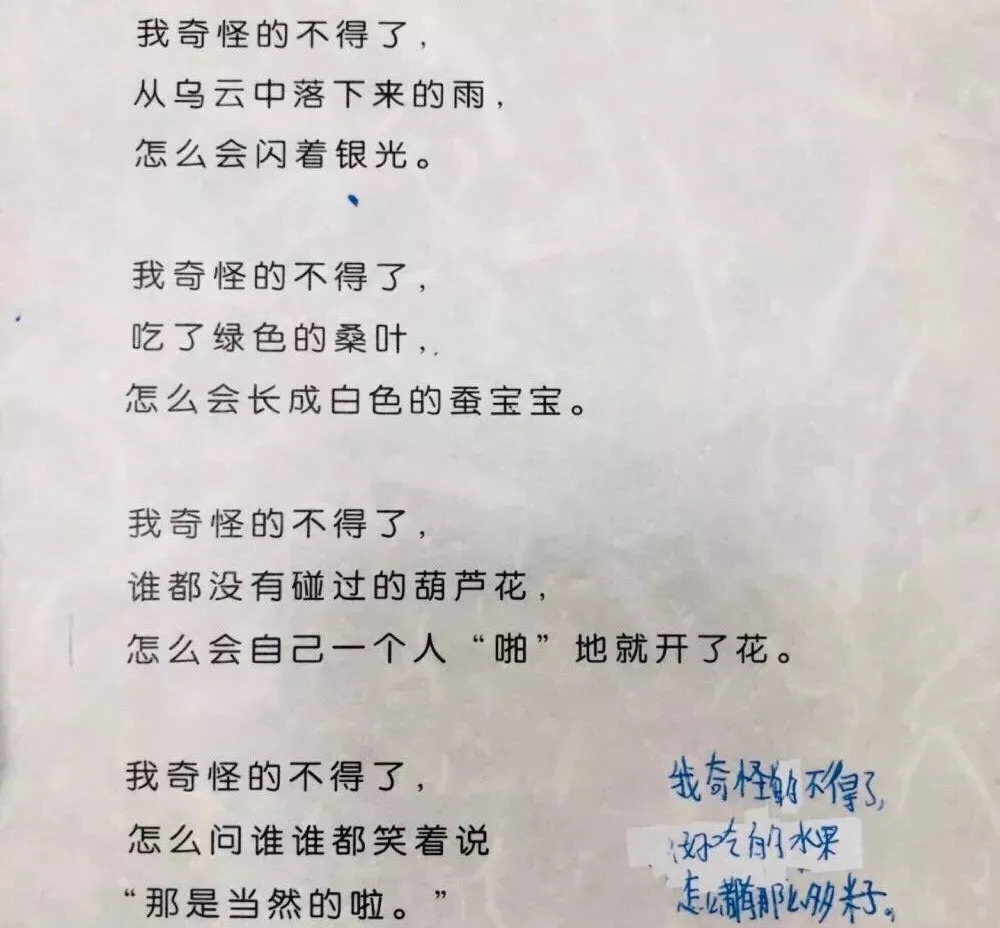 我奇怪的不得了，
从乌云中落下来的雨，
怎么会闪着银光。
我奇怪的不得了，
吃了绿色的桑叶，
怎么会长成白色的蚕宝宝。
我奇怪的不得了，
谁都没有碰过的葫芦花，
怎么会自己一个人“啪”地就开了花。
我奇怪的不得了，
怎么问谁谁都笑着说
“那是当然的啦。”
我奇怪的不得了，
好吃的水果
怎么都有那么多籽。